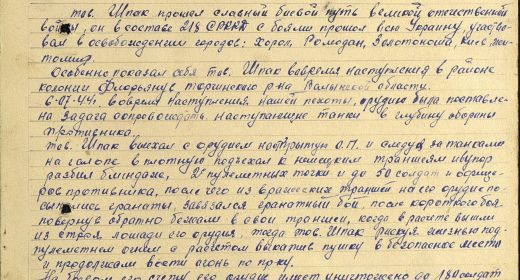 тов. Шпак прошел славный боевой путь великой отечественной
войны, он в составе 218 СРККД с боями прошел всю Украину, участво-
вал в освобождении городов: Хорол, Ромодан, Золотоноша, Киев, Жи-
томир.
Особенно показал себя тов. Шпак вовремя наступления в районе
колонии Флорьянув, Торчинского р-на Волынской области.
6-07-44г. вовремя наступления нашей пехоты, орудию была поставле-
на задача сопровождать наступающие танки в глубину обороны
противника.
тов. Шпак выехал с орудием на открытую О.П. и следуя за танками
на галопе вплотную подъехал к немецким траншеям и в упор
разбил блиндаж, 2е пулеметных точки и до 50 солдат и офице-
ров противника, после чего из вражеских траншей на его орудие по-
сыпались гранаты, завязался гранатный бой, после короткого боя
повернув обратно бежали в свои траншеи, когда в расчете вышли
из строя лошади его орудия, тогда тов. Шпак рискуя жизнью под
пулеметным огнем с расчетом выкатив пушку в безопасное место
и продолжали вести огонь по пр-ку.
На боевом его счету его орудие имеет уничтожено до 180 солдат